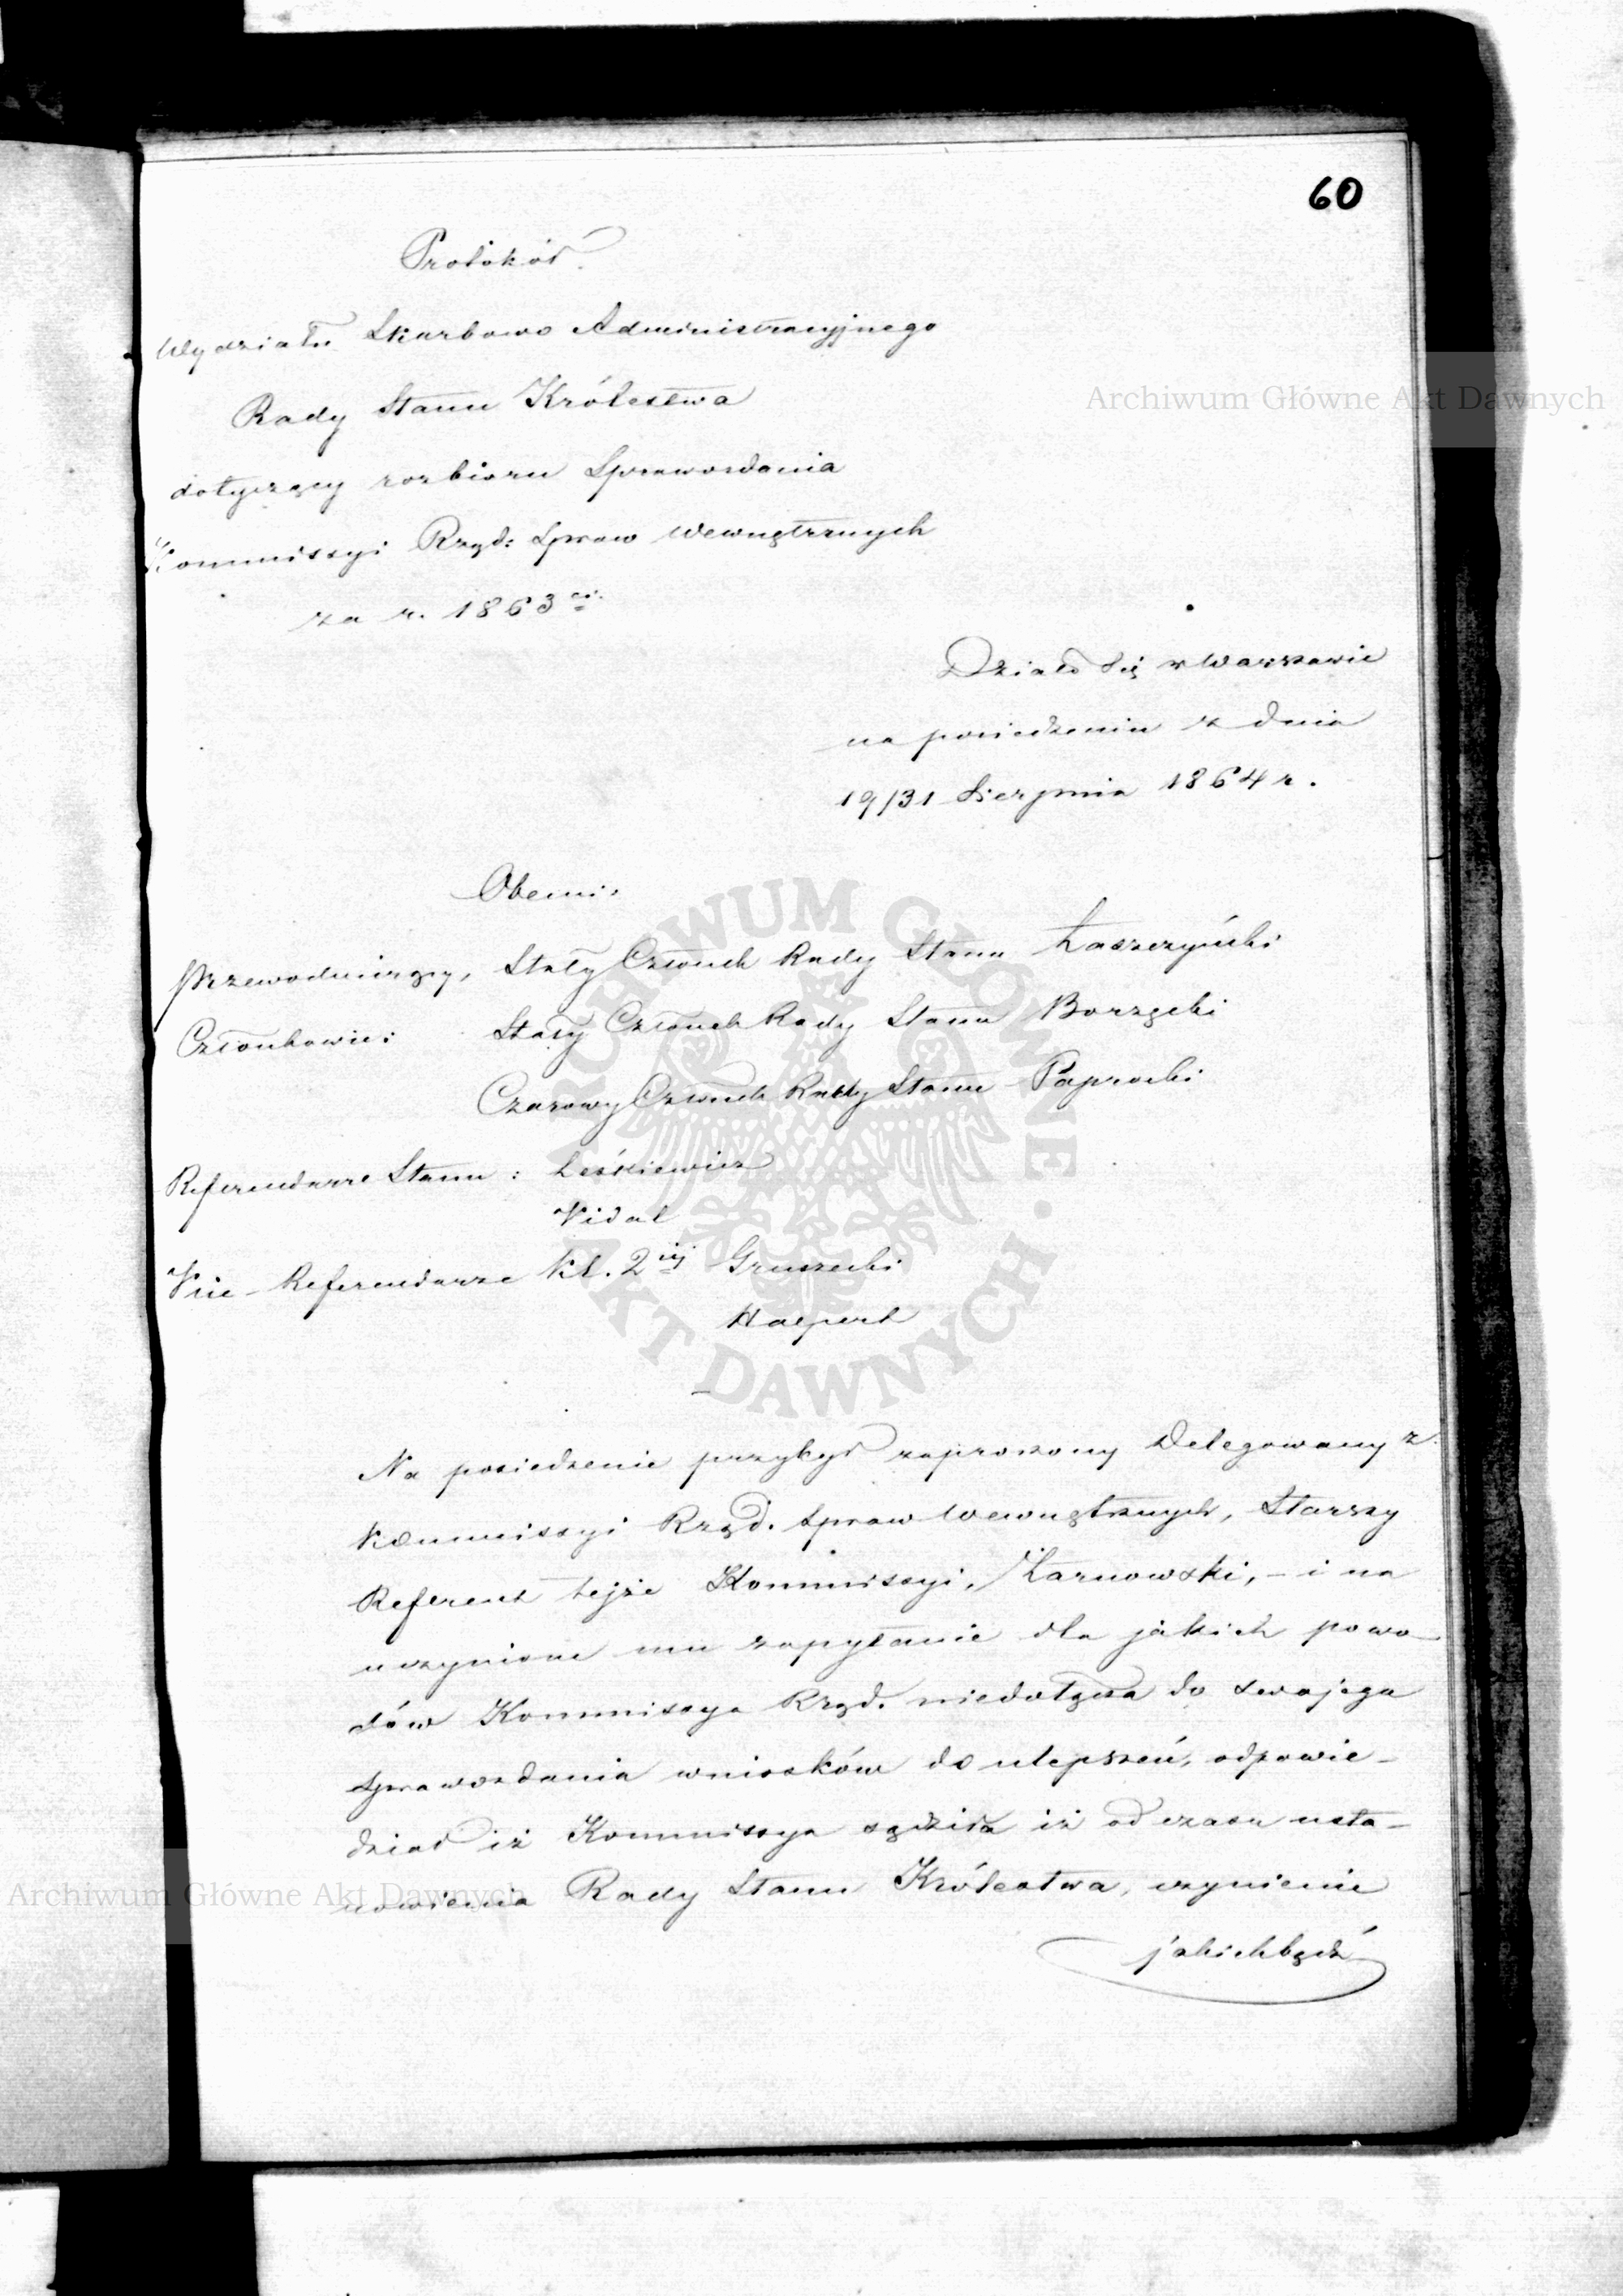 60
Protokół
Wydziału Skarbowo Administracyjnego
Rady Stanu Królestwa
dotyczący rozbioru Sprawozdania
Kommissyi Rząd: Spraw Wewnętrznych
za r. 1863
Działo się w Warszawie
na posiedzeniu z dnia
19/31 Sierpnia 1864 r.
Obecni:
Przewodniczący, Stały Członek Rady Stanu Łaszczyński
Członkowie: Stały Członek Rady Stanu Borzęcki
Czasowy Członek Rady Stanu Paprocki
Referendarze Stanu: Leśkiewicz
Vidal
Vice-Referendarze Kl. 2iéj Gruszecki
Halpert
Na posiedzenie przybył zaproszony Delegowany z
Kommissyi Rząd. Spraw Wewnętrznych, Starszy
Referent tejże Kommissyi, Żarnowski, – i na
uczynione mu zapytanie dla jakich powo-
dów Kommissya Rząd. niedołącza do swojego
Sprawozdania wniosków do ulepszeń, odpowie-
dział iż Kommissya sądziła iż od czasu usta-
nowienia Rady Stanu Królestwa, czynienie
jakichbądź
Archiwum Główne Akt Dawnych
Archiwum Główne Akt Dawnych
ARCHIWUM GŁÓWNE · AKT DAWNYCH ·